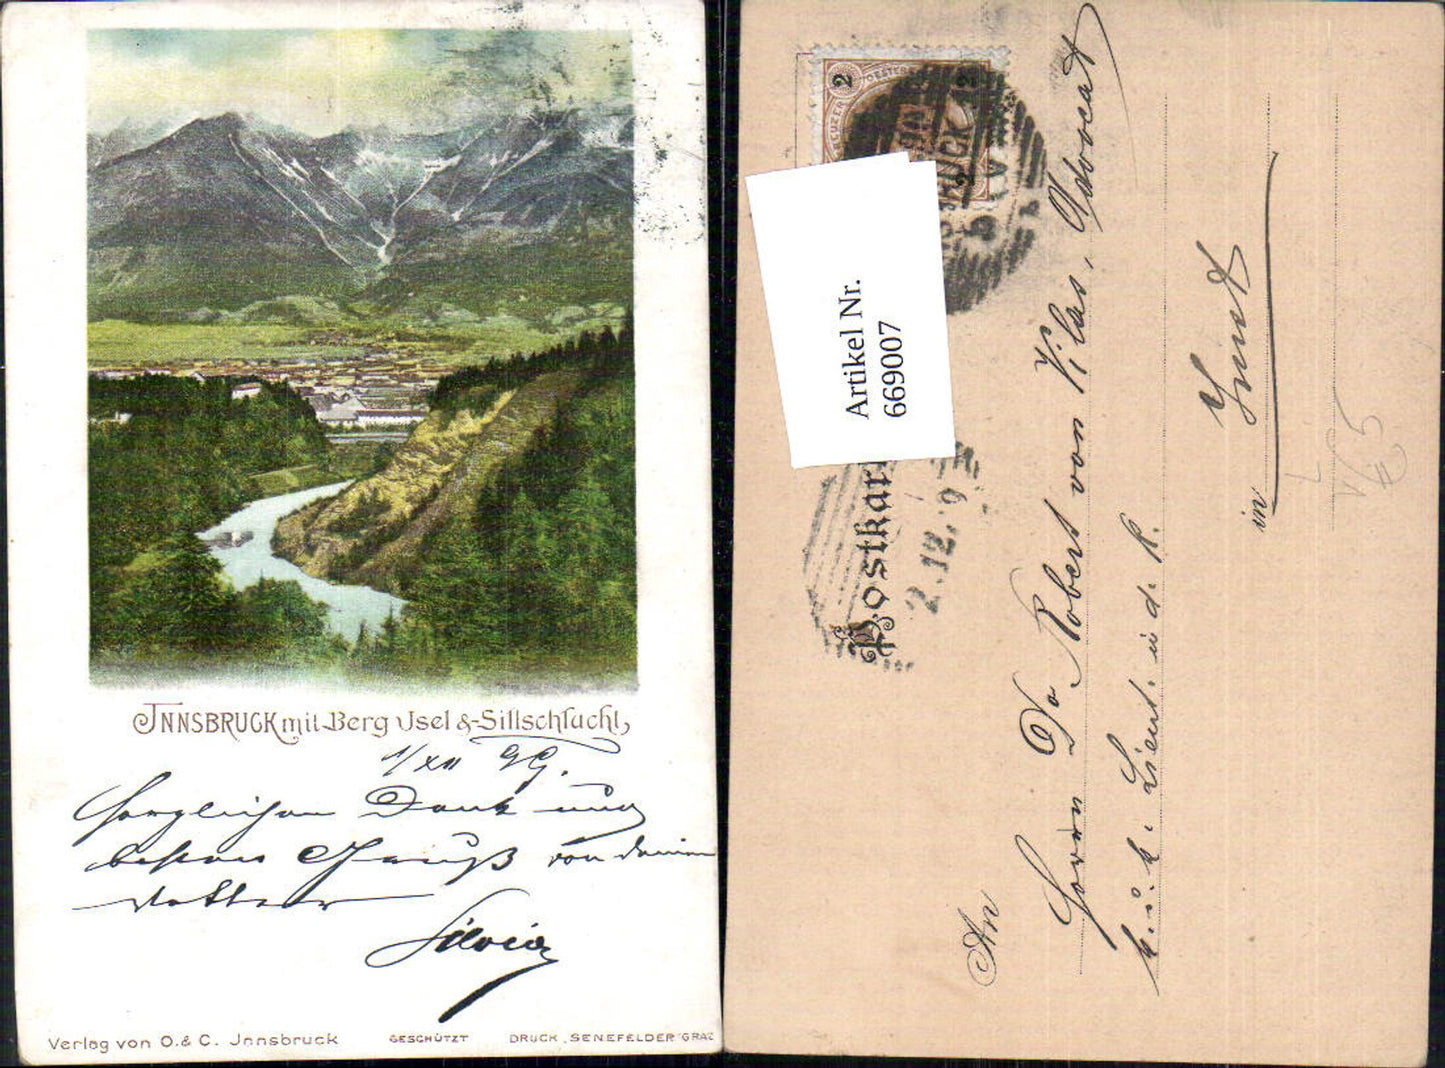 JNNSBRUCK mit Berg Jsel & Sillschlucht,
1/XII 99.
Herzlichen Dank und
besten Gruß von deinem
Vetter
Silvio
Verlag von O. & C. Jnnsbruck GESCHÜTZT DRUCK „SENEFELDER" GRAZ
2 OESTER 2
KREUZER
Artikel Nr.
669007
Postkar
2.12.9
An
Herrn Dr Robert von Vilas, Advocat
k. u. k. Lieut. i. d. R.
in Imst